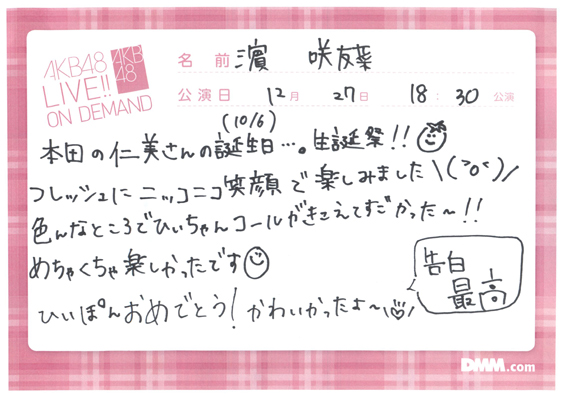 AKB48
LIVE!!
ON DEMAND
AKB
48
名前 濵 咲友菜
公演日 12月 27日 18:30 公演
(10/6)
本田の仁美さんの誕生日…。生誕祭!!
フレッシュにニッコニコ笑顔で楽しみました\(^o^)/
色んなところでひぃちゃんコールがきこえてすごかった〜!!
めちゃくちゃ楽しかったです
告白
最高
ひぃぽんおめでとう!かわいかったよ〜
DMM.com